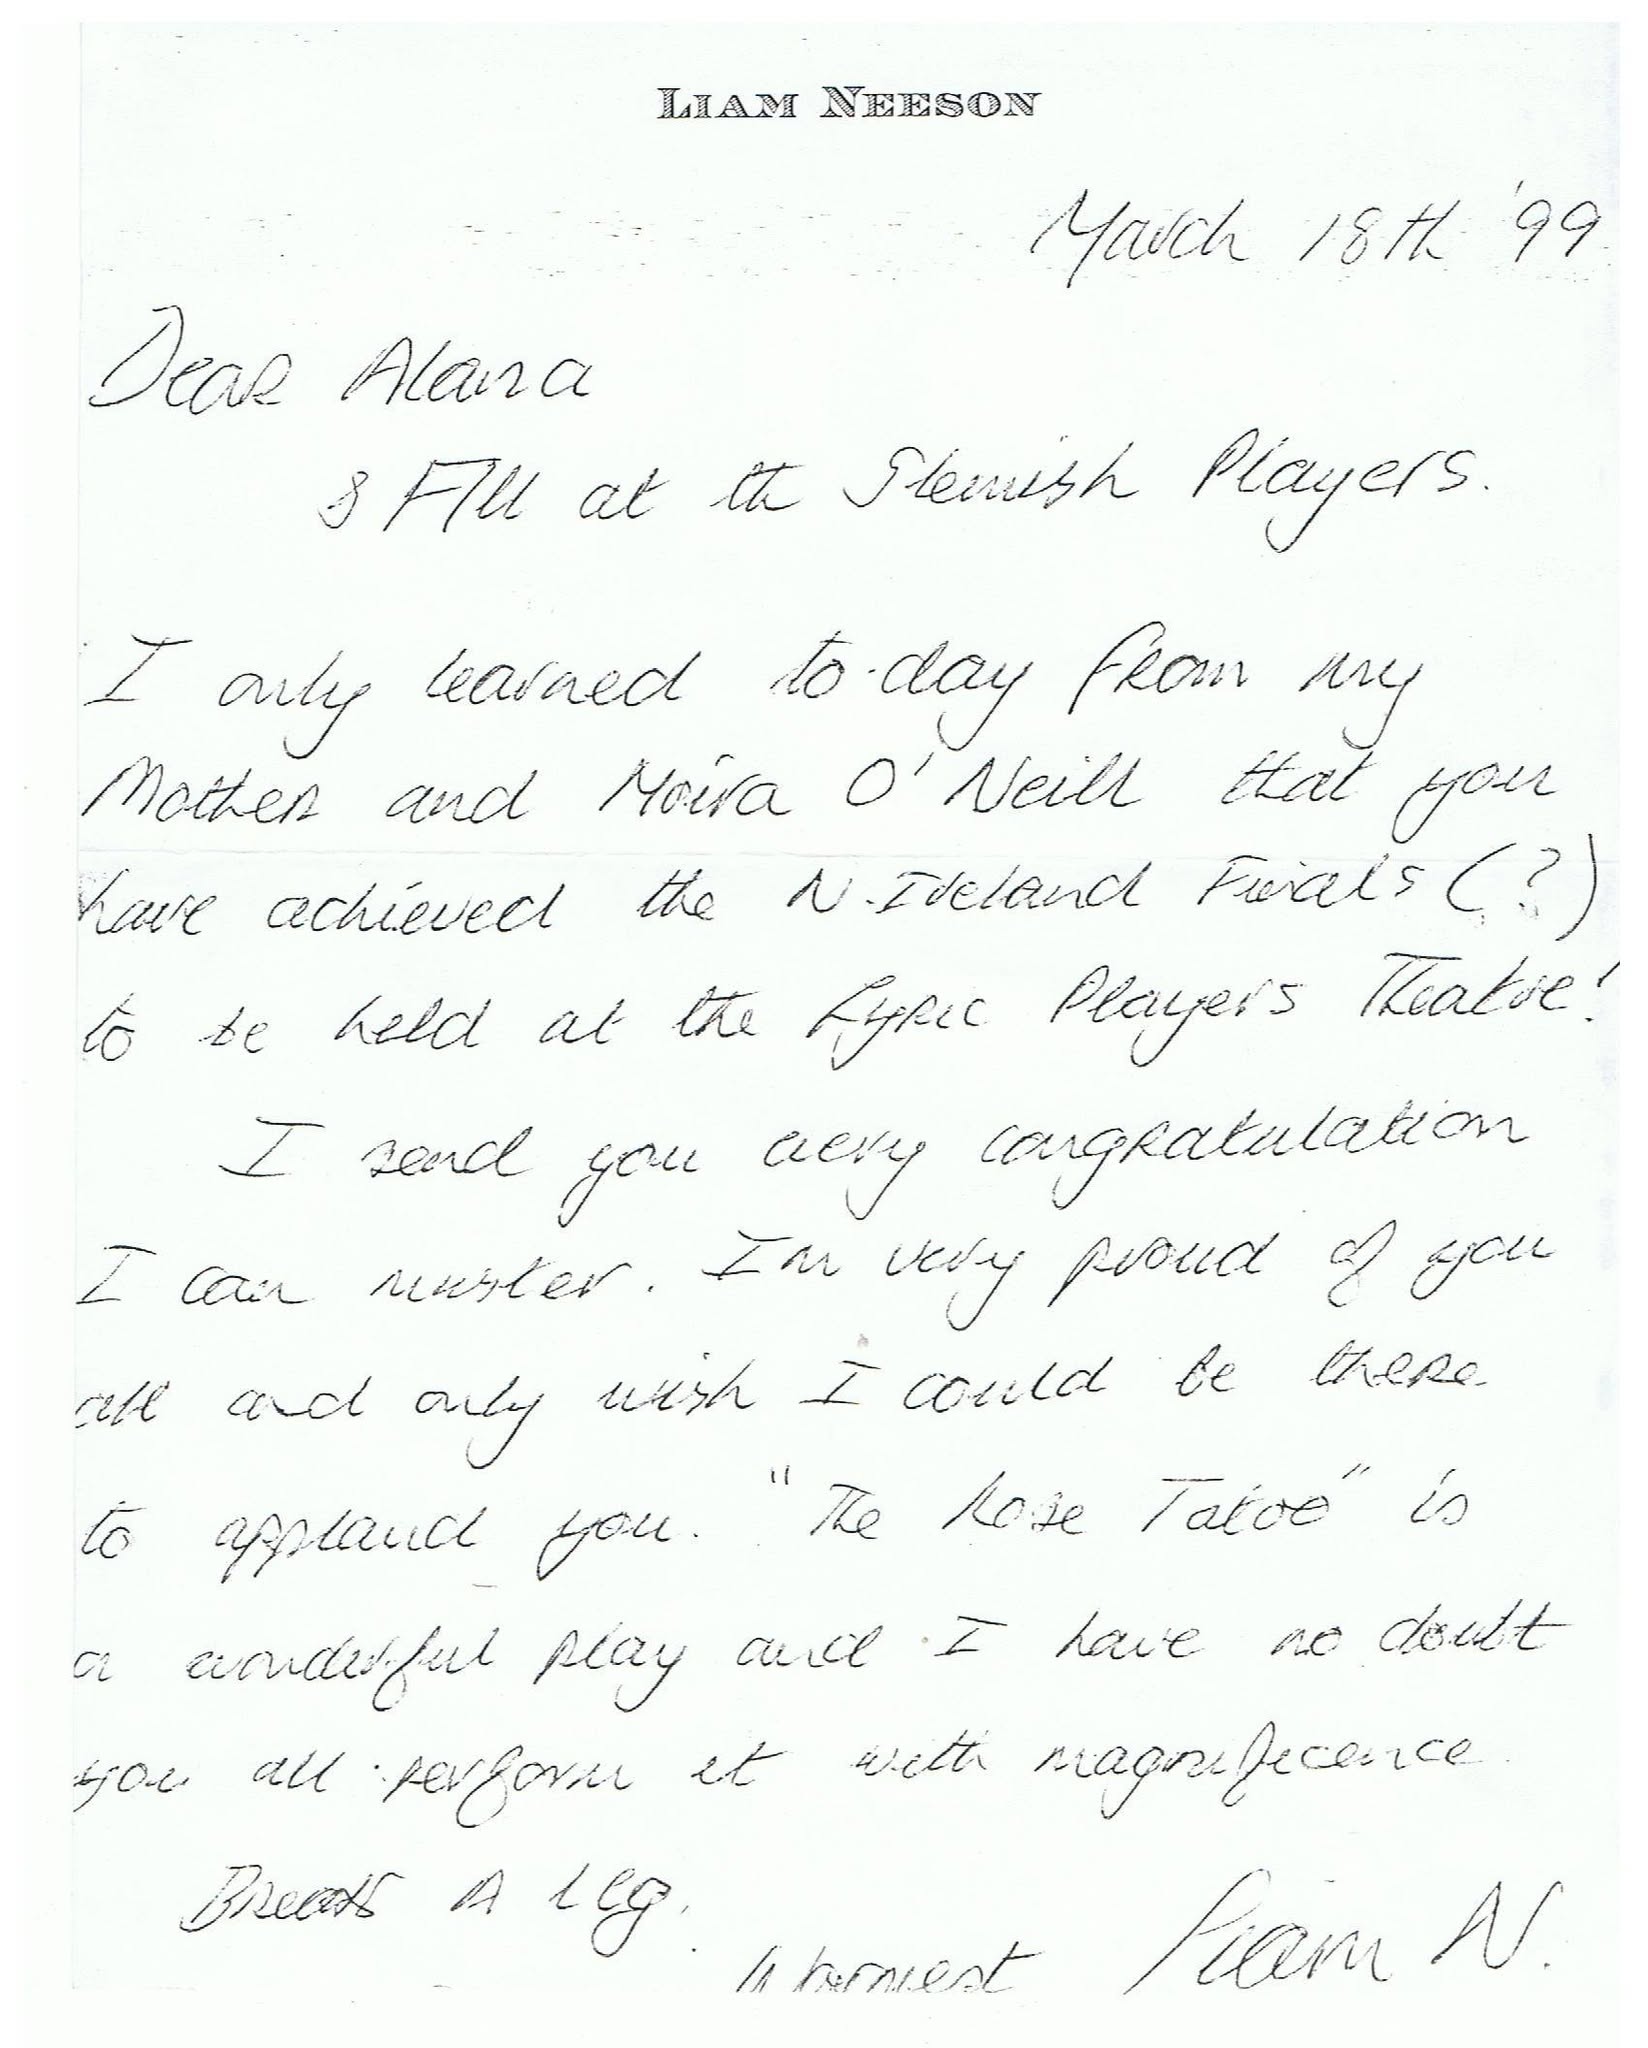 LIAM NEESON
March 18th '99
Dear Alana
& All at th Slemish Players.
I only learned to-day from my
Mother and Moira O'Neill that you
have achieved the N. Ireland Finals (?)
to be held at the Lyric Players Theatre!
I send you every congratulation
I can muster. I'm very proud of you
all and only wish I could be there
to applaud you. "The Rose Tatoo" is
a wonderful play and I have no doubt
you all perform it with magnificence
Break A Leg.
Warmest Liam N.